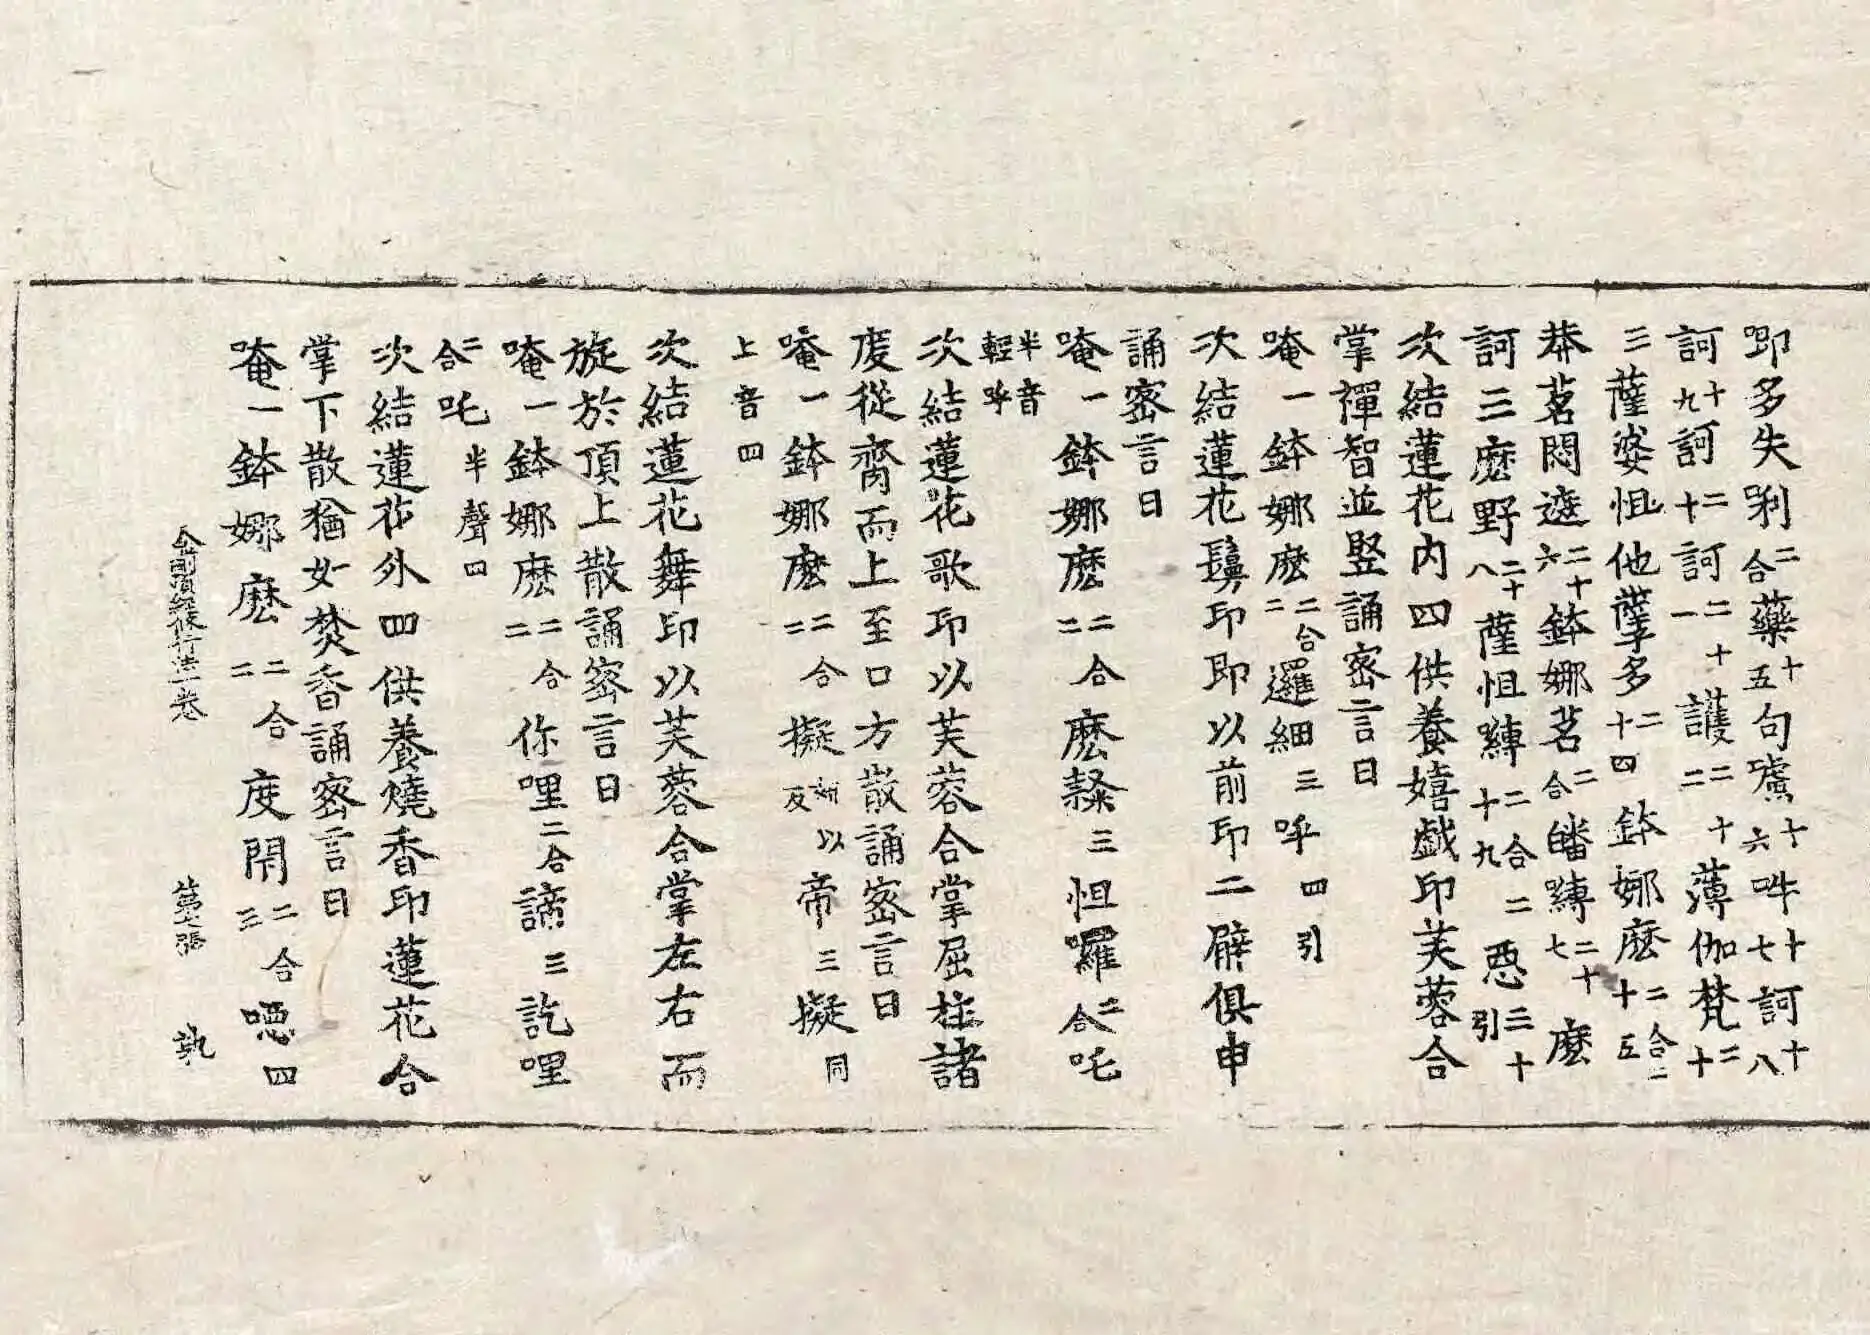 唧多失唎二合藥十五句嚧十六吽十七訶十八
訶十九訶二十訶二十一護二十二薄伽梵二十
三薩婆怛他孽多二十四鉢娜麽二合二十五
莽茗悶遮二十六鉢娜茗二合皤嚩二十七麽
訶三麽野二十八薩怛嚩二合二十九惡引三十
次結蓮花內四供養嬉戲印芙蓉合
掌禪智並竪誦密言曰
唵一鉢娜麽二合二邏細三呼四引
次結蓮花鬘印即以前印二臂俱申
誦密言曰
唵一鉢娜麽二合二麽隸三怛囉二合吒
半音輕呼
次結蓮花歌印以芙蓉合掌屈柱諸
度從齊而上至口方散誦密言曰
唵一鉢娜麽二合二擬妍以反帝三擬同
上音四
次結蓮花舞印以芙蓉合掌左右而
旋於頂上散誦密言曰
唵一鉢娜麽二合二你哩二合諦三訖哩
二合吒半聲四
次結蓮花外四供養燒香印蓮花合
掌下散猶如焚香誦密言曰
唵一鉢娜麽二合二度閇二合三噁四
金剛頂經修行法一卷 第七張 執